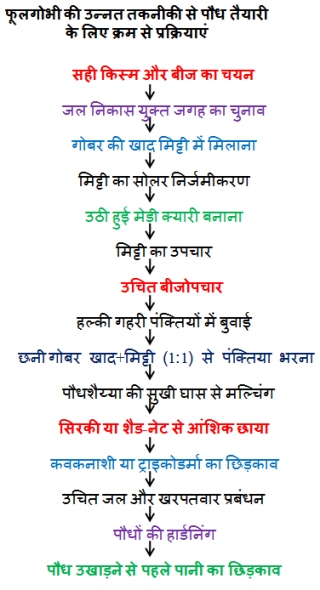 फूलगोभी की उन्नत तकनीकी से पौध तैयारी
के लिए क्रम से प्रक्रियाएं
सही किस्म और बीज का चयन
जल निकास युक्त जगह का चुनाव
गोबर की खाद मिट्टी में मिलाना
मिट्टी का सोलर निर्जमीकरण
उठी हुई मेड़ी क्यारी बनाना
मिट्टी का उपचार
उचित बीजोपचार
हल्की गहरी पंक्तियों में बुवाई
छनी गोबर खाद+मिट्टी (1:1) से पंक्तिया भरना
पौधशैय्या की सुखी घास से मल्चिंग
सिरकी या शैड-नेट से आंशिक छाया
कवकनाशी या ट्राइकोडर्मा का छिड़काव
उचित जल और खरपतवार प्रबंधन
पौधों की हार्डनिंग
पौध उखाड़ने से पहले पानी का छिड़काव